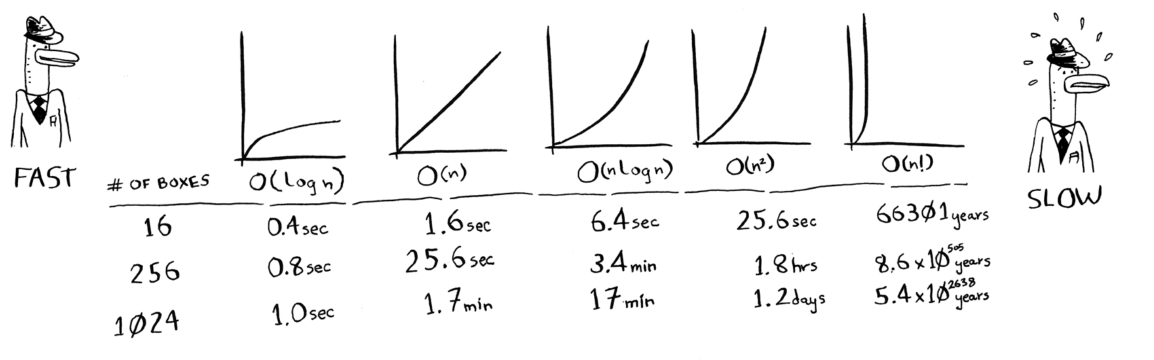 FAST
# OF BOXES O(log n) O(n) O(n log n) O(n²) O(n!)
16 0.4 sec 1.6 sec 6.4 sec 25.6 sec 66301 years
256 0.8 sec 25.6 sec 3.4 min 1.8 hrs 8.6 x 10⁵⁰⁵ years
1024 1.0 sec 1.7 min 17 min 1.2 days 5.4 x 10²⁶³⁸ years
SLOW